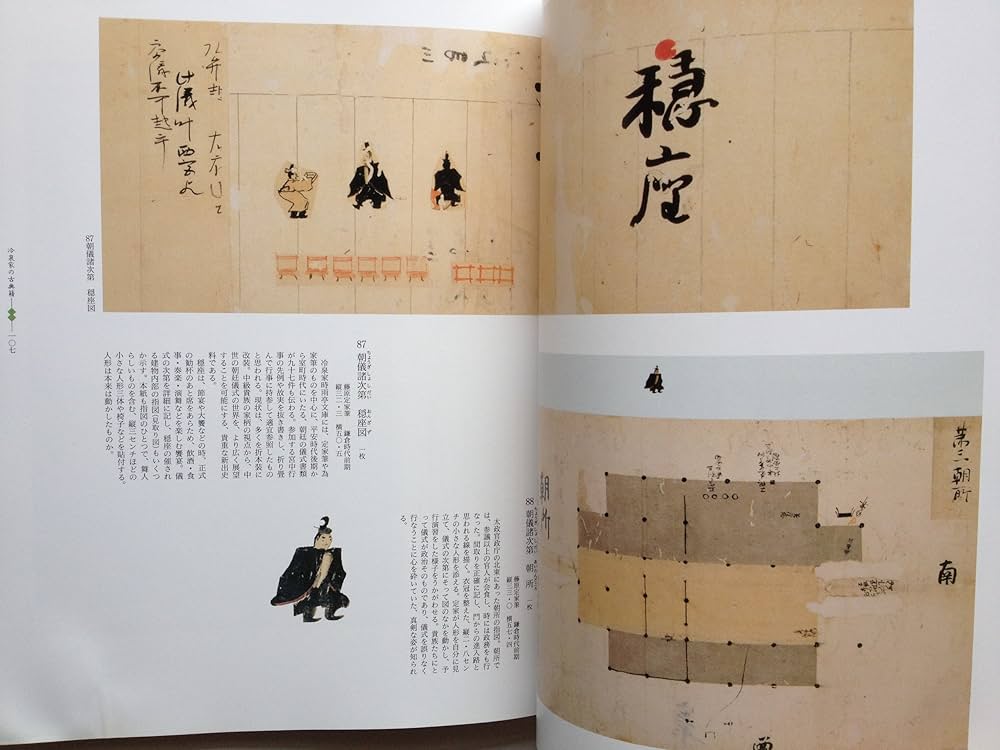 穏座
87 朝儀諸次第　穏座図
冷泉家の古典籍
一〇七
87 朝儀諸次第　穏座図　一枚
藤原定家筆　鎌倉時代前期
冷泉家時雨亭文庫には、定家筆や為
家筆のものを中心に、平安時代後期か
ら室町時代にいたる、朝廷の儀式書類
が九十七件も伝わる。参加する宮中行
事の先例や故実を抜き書きし、折り畳
んで行事に持参して適宜参照したもの
と思われる。現状は、多くを折本装に
改装。中級貴族の家柄の視点から、中
世の朝廷儀式の世界を、より広く展望
することを可能にする、貴重な新出史
料である。
穏座は、節宴や大饗などの時、正式
の勧杯のあと席をあらため、飲酒・食
事・奏楽・演舞などを楽しむ饗宴。儀
式の次第を詳細に記し、穏座の催され
る建物内部の指図（見取り図）をいくつ
か示す。本紙も指図のひとつで、舞人
らしいものを含む、縦三センチほどの
小さな人形三体や椅子などを貼付する。
人形は本来は動かしたものか。
88 朝儀諸次第　朝所　一枚
藤原定家筆　鎌倉時代前期
縦三一・〇　横五七・四
太政官政庁の北東にあった朝所の指図。朝所で
は、参議以上の官人が会食し、時には政務をも行
なった。間取りを正確に記し、門からの進入路と
思われる線を描く。衣冠を整えた、縦二・八セン
チの小さな人形を添える。定家が人形を自分に見
立て、儀式の次第にそって図のなかを動かし、予
行演習をした様子をうかがわせる。貴族たちにと
って儀式が政治そのものであり、儀式を誤りなく
行なうことに心を砕いていた、真剣な姿が知られ
る。
第二朝所
朝所
南
酉